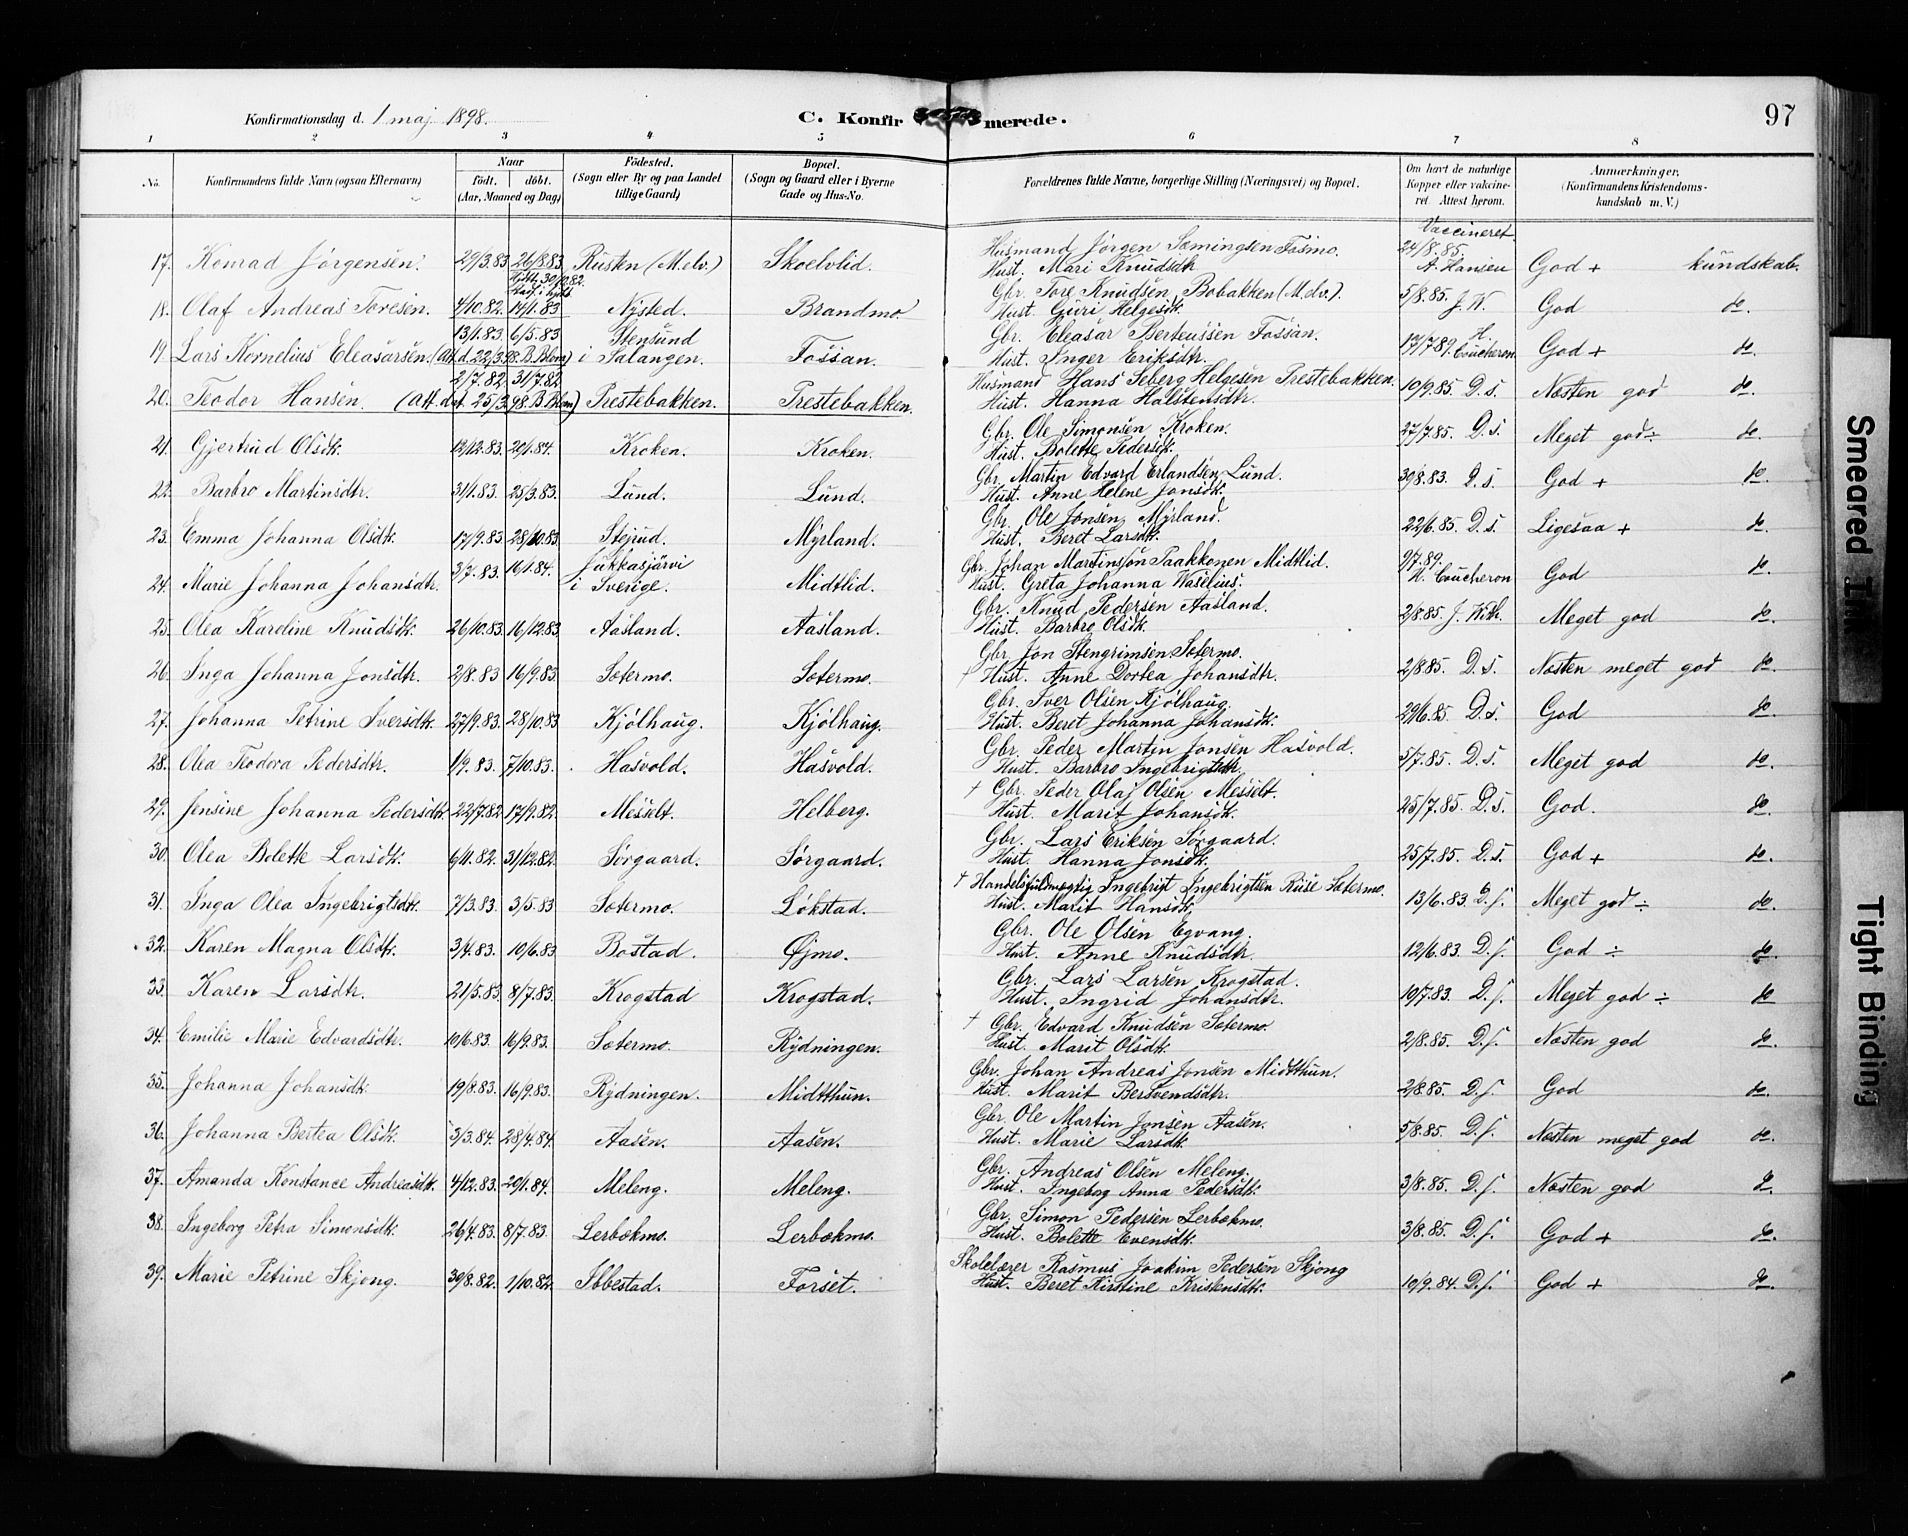 Konfirmationsdag d. 1 maj 1898.
C. Konfirmerede.
97
1 2 3 4 5 6 7 8
No.
Konfirmandens fulde Navn (ogsaa Efternavn)
Naar
födt. döbt.
(Aar, Maaned og Dag)
Födested.
(Sogn eller By og paa Landet
tillige Gaard)
Bopæl.
(Sogn og Gaard eller i Byerne
Gade og Hus-No.
Forældrenes fulde Navne, borgerlige Stilling (Næringsvei) og Bopæl.
Om havt de naturlige
Kopper eller vakcine-
ret Attest herom.
Anmærkninger,
(Konfirmandens Kristendoms-
kundskab m. V.)
17. Konrad Jørgensen. 29/3.83 26/8.83 Rusten (Melv.) Skoelvlid. Husmand Jørgen Sæmingsen Fosmo. Vaccineret 24/8.85. A. Hansen God + kundskab.
Hust. Mari Knudsdtr
18. Olaf Andreas Toresen. 4/10.82. 14/1.83 Nysted. Brandmo. Gbr. Tore Knudsen Bobakken (Melv.). 5/8.85. J. W. God do.
Hust. Guri Helgesdtr.
19. Lars Kornelius Eleasarsen. (Att. d. 22/3.98. B. Blom) 13/1.83 6/5.83 Stensund i Salangen. Fossan. Gbr. Eleasar Berteussen Fossan. 17/7.89. H. Coucheron God + do.
Hust. Inger Eriksdtr.
20. Teodor Hansen. (Att. dat. 25/3.98. B. Blom) 2/7.82. 31/7.82 Prestebakken. Prestebakken. Husmand Hans Seberg Helgesen Prestebakken. 10/9.85. D. s. Næsten god do.
Hust. Hanna Halstensdtr.
21. Gjertrud Olsdtr. 12/12.83. 20/1.84. Kroken. Kroken. Gbr. Ole Simonsen Kroken. 27/7.85. D. s. Meget god ÷ do.
Hust. Bolette Pedersdtr.
22. Barbro Martinsdtr. 31/1.83. 25/3.83. Lund. Lund. Gbr. Martin Edvard Erlandsen Lund. 30/8.83. D. s. God + do.
Hust. Anne Helene Jonsdtr.
23. Emma Johanna Olsdtr. 17/9.83 28/10.83. Stejrud. Myrland. Gbr. Ole Jonsen Myrland. 22/6.85. D. s. Ligesaa + do.
Hust. Beret Larsdtr.
24. Marie Johanna Johansdtr. 3/7.83. 16/1.84. Jukkasjärvi i Sverige. Midtlid. Gbr. Johan Martinsson Paakkonen Midtlid. 9/7.89. H. Coucheron God do.
Hust. Greta Johanna Waselius.
25. Olea Karoline Knudsdtr. 26/10.83. 16/12.83. Aasland. Aasland. Gbr. Knud Pedersen Aasland. 2/8.85. J. With. Meget god do.
Hust. Barbro Olsdtr.
26. Inga Johanna Jonsdtr. 2/8.83 16/9.83. Sætermo. Sætermo. Gbr. Jon Stengrimsen Sætermo. 2/8.85. D. s. Næsten meget god do
† Hust. Anne Dortea Johansdtr.
27. Johanna Petrine Iversdtr. 27/9.83. 28/10.83. Kjølhaug. Kjølhaug. Gbr. Iver Olsen Kjølhaug. 29/6.85. D. s. God do.
Hust. Beret Johanna Johansdtr.
28. Olea Teodora Pedersdtr. 1/9.83. 7/10.83. Hasvold. Hasvold. Gbr. Peder Martin Jonsen Hasvold. 5/7.85. D. s. Meget god do.
Hust. Barbro Ingebrigtsdtr.
29. Jensine Johanna Pedersdtr. 22/7.82 17/9.82. Messelt. Helberg. † Gbr. Peder Olaj Olsen Messelt. 25/7.85. D. s. God. do.
Hust. Marit Johansdtr.
30. Olea Bolette Larsdtr. 6/11.82. 31/12.82. Sørgaard. Sørgaard. Gbr. Lars Eriksen Sørgaard. 25/7.85. D. s. God + do.
Hust. Hanna Jonsdtr.
31. Inga Olea Ingebrigtsdtr. 7/3.83. 3/5.83 Sætermo. Løkstad. † Handelsfuldmægtig Ingebrigt Ingebrigtsen Ruse Sætermo. 13/6.83. D. s. Meget god ÷ do.
Hust. Marit Hansdtr.
32. Karen Magna Olsdtr. 3/4.83. 10/6.83 Bostad. Øjmo. Gbr. Ole Olsen Egvang. 12/6.83. D. s. God ÷ do.
Hust. Anne Knudsdtr.
33. Karen Larsdtr. 21/5.83. 8/7.83. Krogstad Krogstad. Gbr. Lars Larsen Krogstad. 10/7.83. D. s. Meget god ÷ do
Hust. Ingrid Johansdtr.
34. Emilie Marie Edvardsdtr. 10/6.83. 16/9.83. Sætermo. Rydningen. † Gbr. Edvard Knudsen Sætermo. 2/8.85. D. s. Næsten god do.
Hust. Marit Olsdtr.
35. Johanna Johansdtr. 19/8.83. 16/9.83. Rydningen. Midtthun. Gbr. Johan Andreas Jonsen Midtthun. 2/8.85. D. s. God do.
Hust. Marit Bersvendsdtr.
36. Johanna Bertea Olsdtr. 3/3.84. 28/4.84. Aasen. Aasen. Gbr. Ole Martin Jonsen Aasen. 5/8.85. D. s. Næsten meget god do.
Hust. Marie Larsdtr.
37. Amanda Konstance Andreasdtr. 4/12.83. 29/1.84. Meleng. Meleng. Gbr. Andreas Olsen Meleng. 3/8.85. D. s. Næsten god do.
Hust. Ingeborg Anna Pedersdtr.
38. Ingeborg Petra Simonsdtr. 26/4.83 8/7.83. Lerbækmo. Lerbækmo. Gbr. Simon Pedersen Lerbækmo. 3/8.85. D. s. God + do.
Hust. Bolette Evensdtr.
39. Marie Petrine Skjong. 30/8.82. 1/10.82. Ibbestad. Forset. Skolelærer Rasmus Joakim Pedersen Skjong 10/9.84. D. s. God + do.
Hust. Beret Kirstine Kristensdtr.
Smeared Ink
Tight Binding